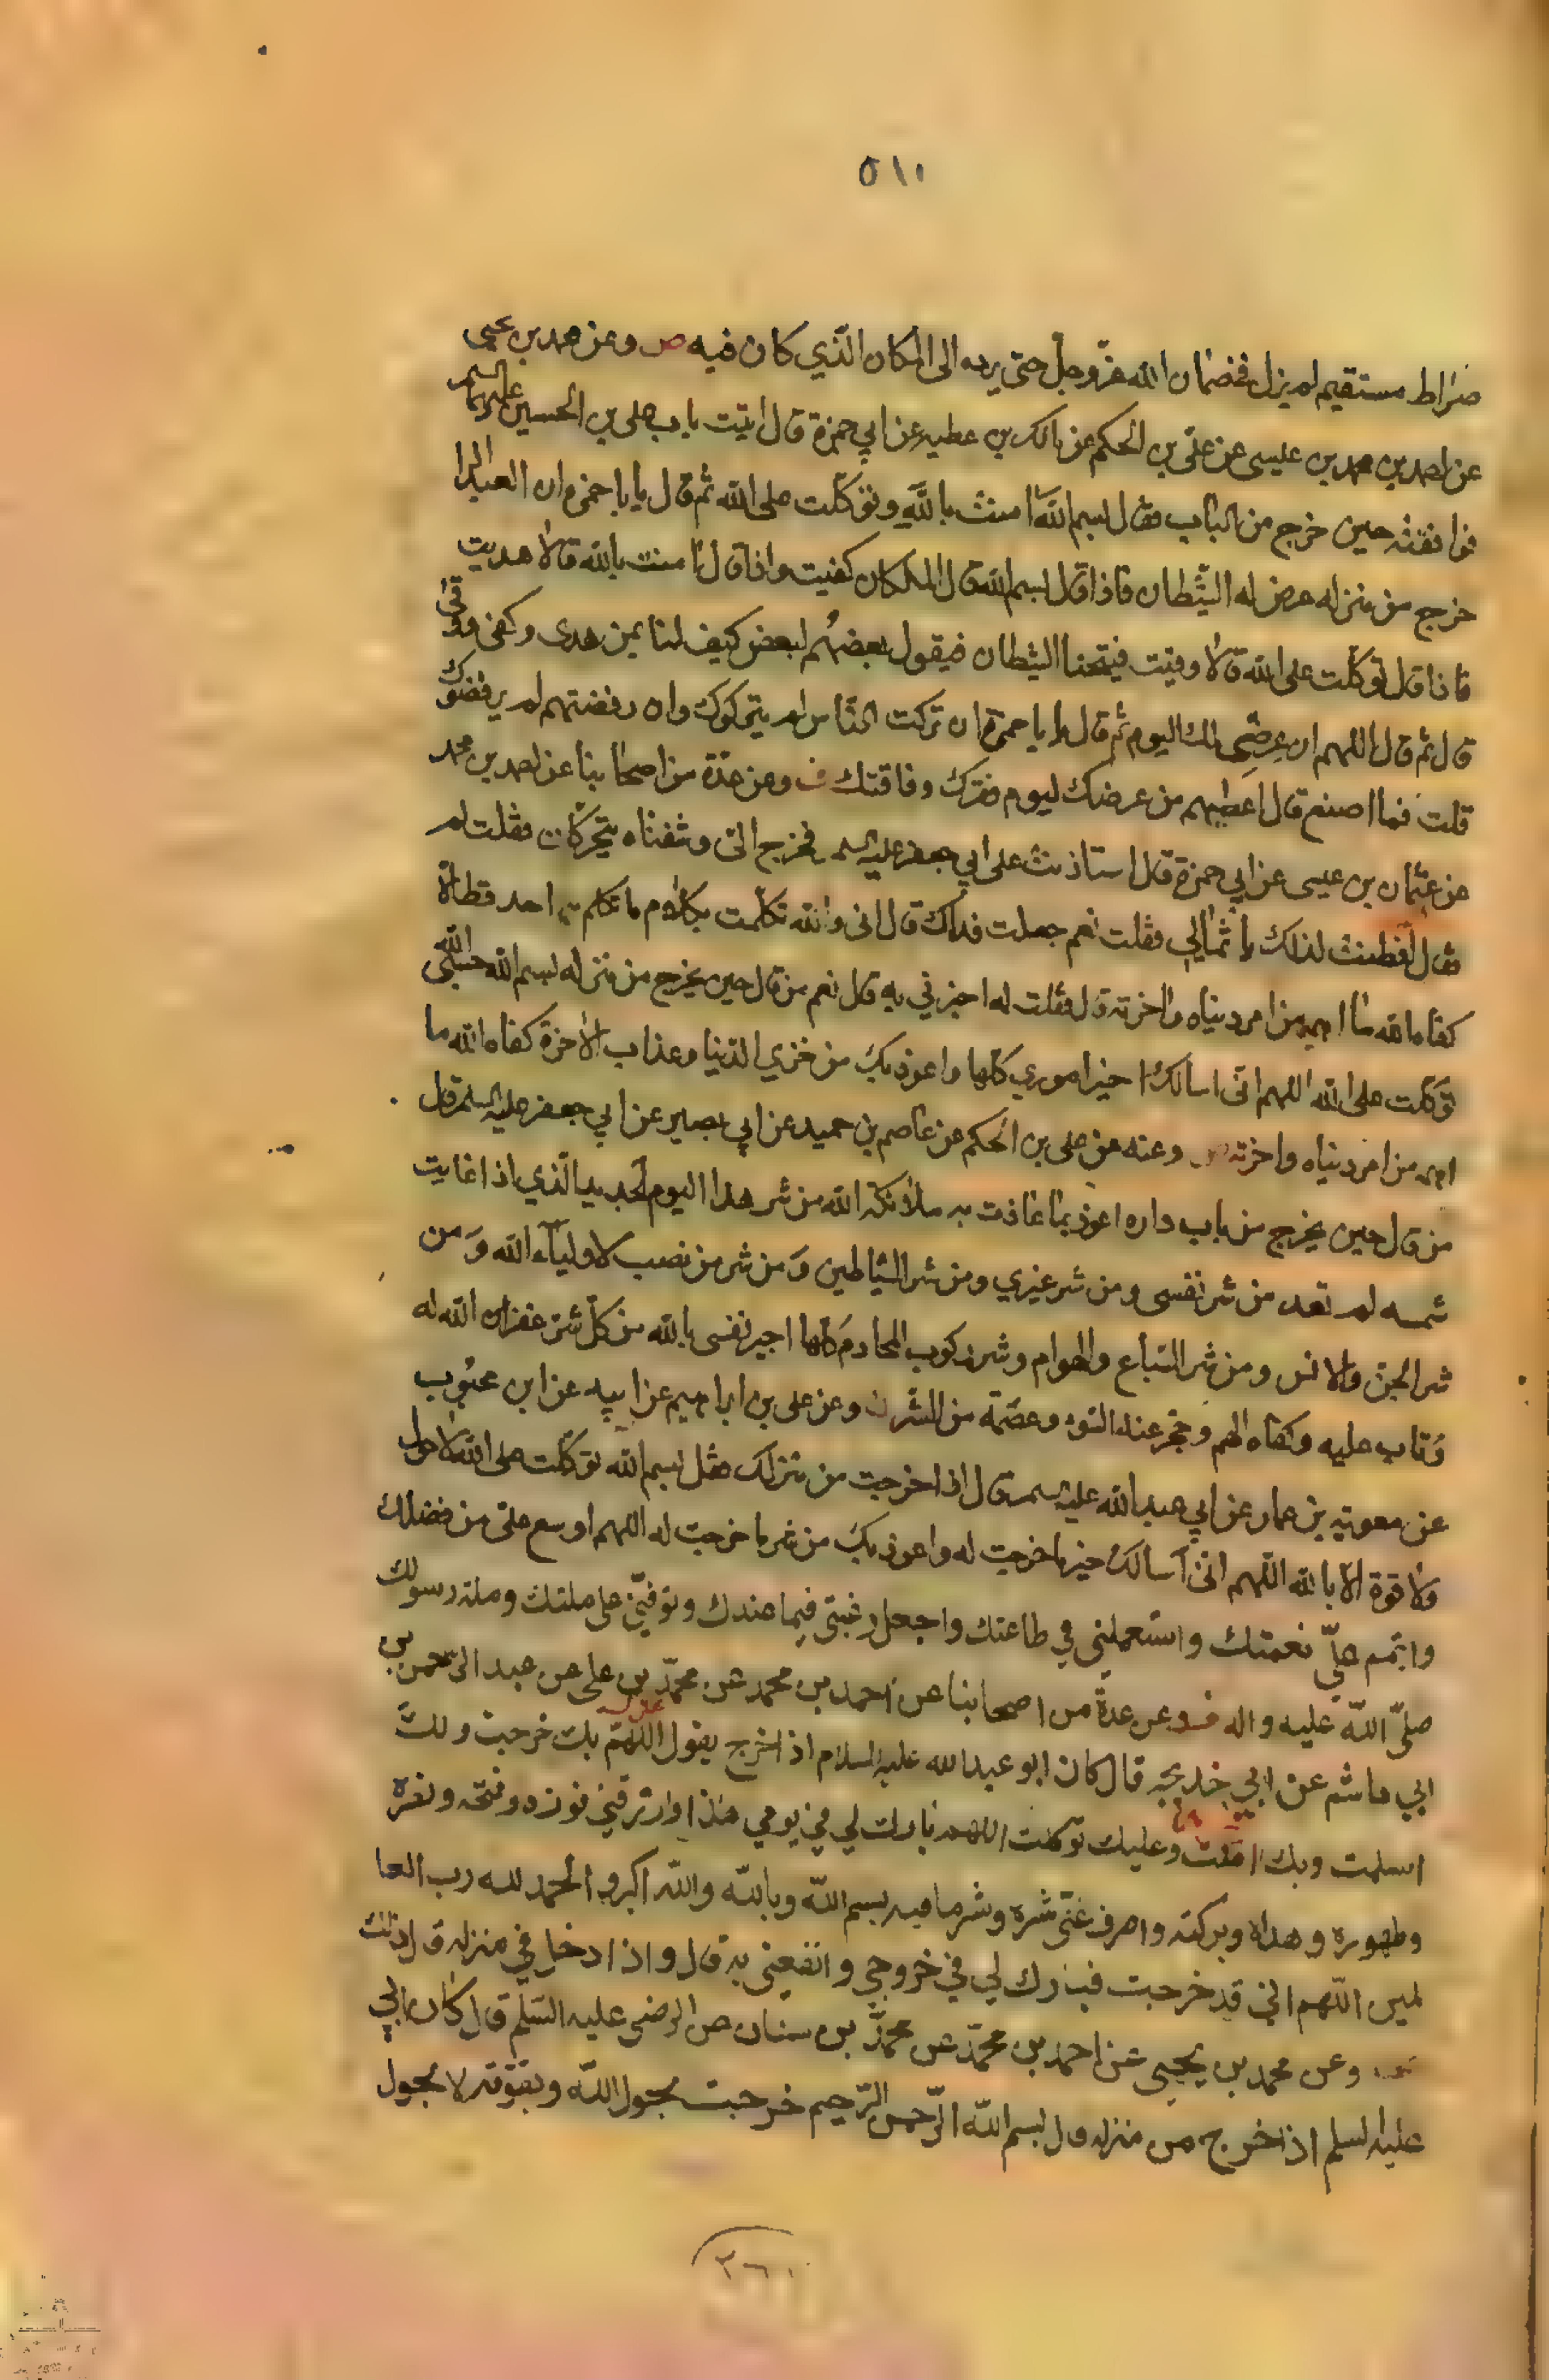 ٥١٠
صراط مستقيم لم يزل في ضمان الله عزّ وجلّ حتى يرده الى المكان الّذي كان فيه ص وعن محمد بن يحيى
عن احمد بن محمد بن عيسى عن علي بن الحكم عن مالك بن عطيه عن ابي حمزة قال اتيت باب علي بن الحسين عليهما السلم
فوافقته حين خرج من الباب فقال بسم الله امنت بالله وتوكّلت على الله ثم قال يا باحمزه ان العبد اذا
خرج من منزله عرض له الشيطان فاذا قال بسم الله قال الملكان كفيت واذا قال امنت بالله قالا هديت
فاذا قال توكّلت على الله قالا وقيت فيتنحا الشيطان فيقول بعضهم لبعض كيف لنا بمن هدى وكفى ووقى
قال ثم قال اللهم ان عرضي لك اليوم ثم قال يا با حمزة ان تركت الناس لم يتركوك وان رفضتهم لم يرفضوك
قلت فما اصنع قال اعطيهم من عرضك ليوم فقرك وفاقتك ف وعن عدّة من اصحابنا عن احمد بن محمد
عن عثمان بن عيسى عن ابي حمزة قال استاذنت على ابي جعفر عليه السلم فخرج الىّ وشفتاه يتحركان فقلت له
فقال افطنت لذلك يا ثمالي فقلت نعم جعلت فداك قال اني والله تكلمت بكلام ما تكلم به احد قط الا
كفاه الله ما اهمه من امر دنياه واخرته قال فقلت له اخبرني به قال نعم من قال حين يخرج من منزله بسم الله حسبي الله
توكّلت على الله اللهم انّى اسالك خير اموري كلها واعوذ بك من خزي الدنيا وعذاب الاخرة كفاه الله ما
اهمه من امر دنياه واخرته ص وعنه عن علي بن الحكم عن عاصم بن حميد عن ابي بصير عن ابي جعفر عليه السلم قال
من قال حين يخرج من باب داره اعوذ بما عاذت به ملائكة الله من شر هذا اليوم الجديد الّذي اذا غابت
شمسه لم تعد من شر نفسى ومن شر غيري ومن شر الشياطين وَمن شر من نصب لاولياء الله وَمن
شر الجن والانس ومن شر السباع والهوام وشر ركوب المحارم كلها اجير نفسى بالله من كل شر غفر الله له
وَتاب عليه وكفاه الهم وحجزه عن السوء وعصمه من الشر ن وعن علي بن ابراهيم عن ابيه عن ابن محبوب
عن معويه بن عمار عن ابي عبد الله عليه السلم قال اذا خرجت من منزلك فقل بسم الله توكّلت على الله لا حول
ولا قوة الا بالله اللهم انّى اسالك خير ما خرجت له واعوذ بك من شر ما خرجت له اللهم اوسع علىّ من فضلك
واتمم عليّ نعمتك واستعملني في طاعتك واجعل رغبتى فيما عندك وتوفّني على ملتك وملة رسولك
صلّى اللّه عليه واله ف وعن عدة من اصحابنا عن احمد بن محمد عن محمّد بن على عن عبد الرحمن بن
ابي هاشم عن ابي خديجه قال كان ابو عبد الله عليه السلام اذا خرج يقول اللّهمّ بك خرجت ولك
اسلمت وبك امنت وعليك توكلت اللهم بارك لي في يومي هذا وارزقني فوزه وفتحه ونصره
وطهوره وهداه وبركته واصرف عنّى شره وشر ما فيه بسم اللّه وباللّه واللّه اكبر والحمد لله رب العا
لمين اللّهم اني قد خرجت فبارك لي في خروجي وانفعني به قال واذا دخل في منزله قال ذلك
وعن محمد بن يحيى عن احمد بن محمّد عن محمّد بن سنان عن الرضى عليه السّلم قال كان ابي
عليه السلم اذا خرج من منزله قال بسم اللّه الرّحمن الرّحيم خرجت بحول اللّه وبقوّته لا بحول
٢٦٠